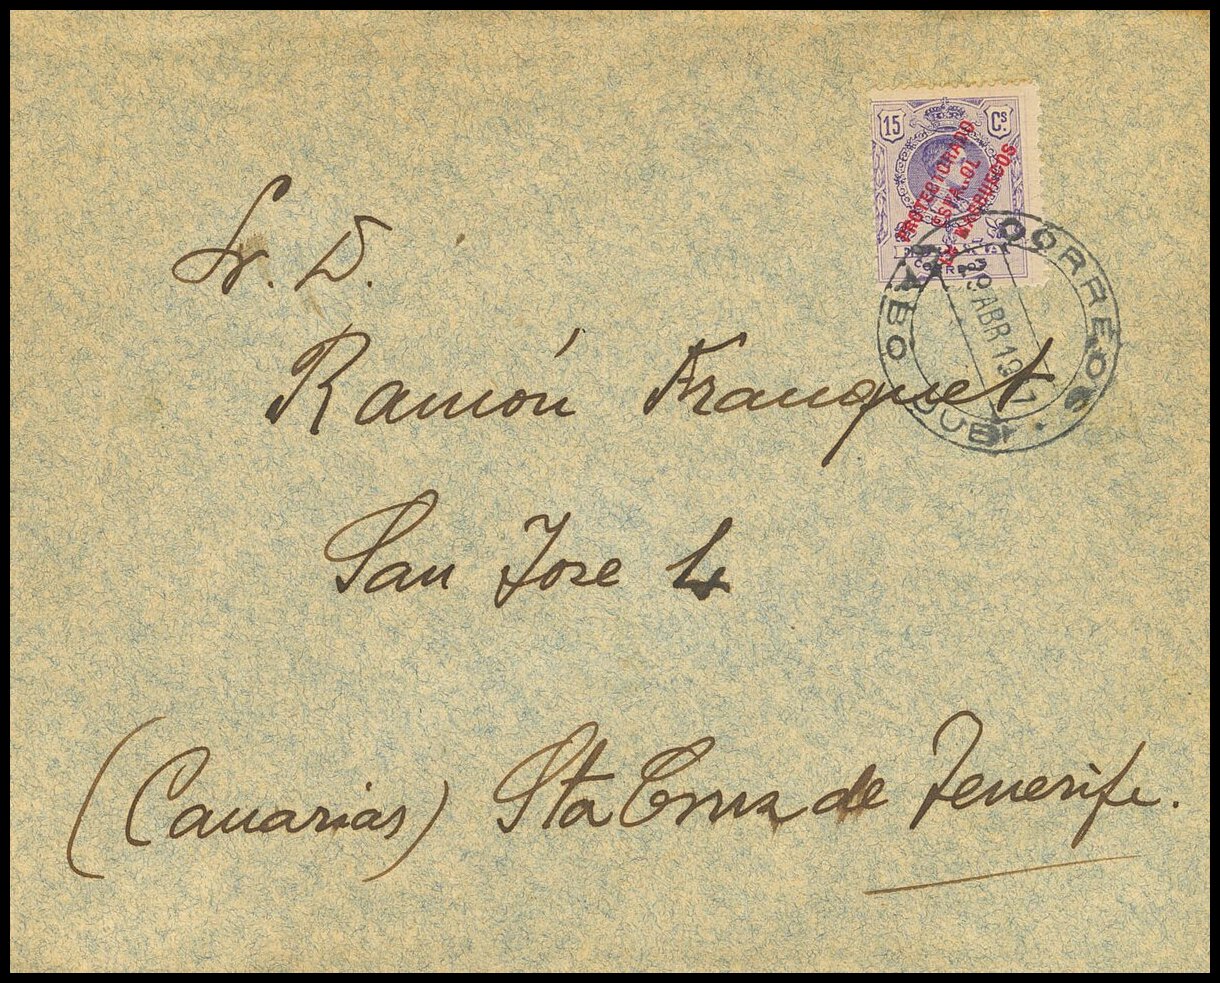 15 Cs.
PROTECTORADO
ESPAÑOL
EN MARRUECOS
CORREOS
CORREOS
CABO JUBI
29 ABR 19
Sr. D.
Ramón Franquet
San Jose 4
(Canarias) Sta Cruz de Tenerife.